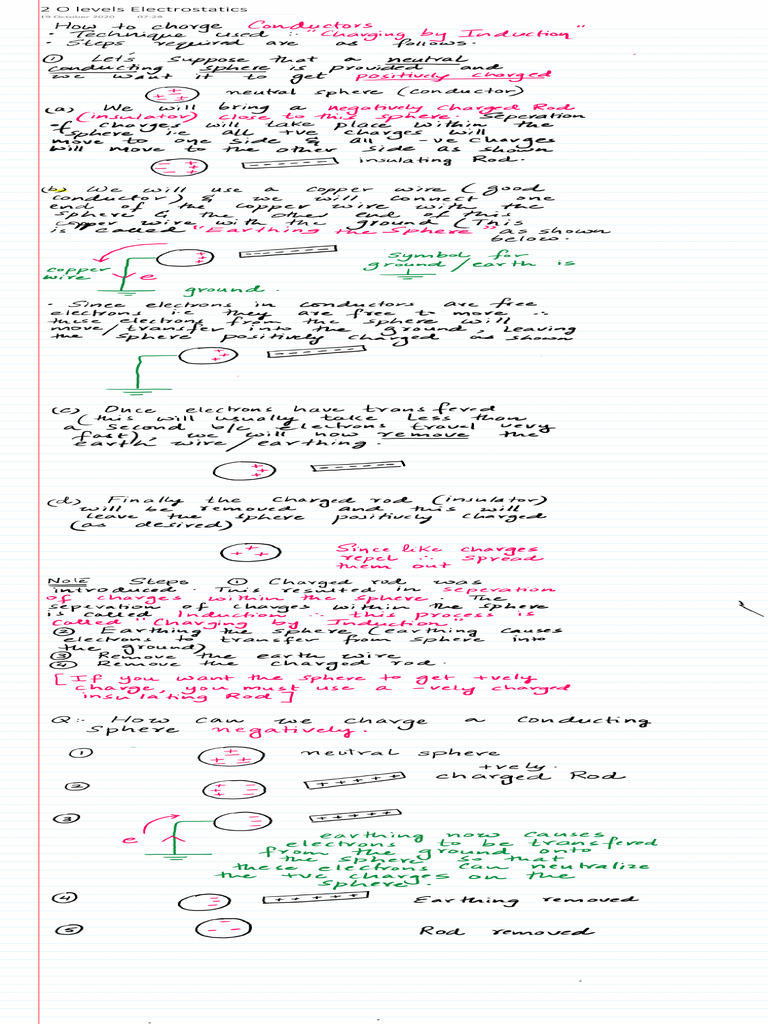 2 O levels Electrostatics
19 October 2020 07:28
How to charge Conductors
· Technique used :- "Charging by Induction"
· Steps required are as follows.
① Let's suppose that a neutral
conducting sphere is provided and
we want it to get positively charged
neutral sphere (conductor)
(a) We will bring a negatively charged Rod
(insulator) close to this sphere. Seperation
of charges will take place within the
sphere i.e all +ve charges will
move to one side & all -ve charges
will move to the other side as shown
insulating Rod.
(b) We will use a copper wire (good
conductor) & we will connect one
end of the copper wire with the
sphere & the other end of this
copper wire with the ground (This
is called "Earthing the Sphere" as shown
below.
Symbol for
ground/earth is
copper
wire
e
ground.
· Since electrons in conductors are free
electrons i.e they are free to move ∴
these electrons from the sphere will
move/transfer into the ground, leaving
the sphere positively charged as shown
(c) Once electrons have transfered
(this will usually take less than
a second b/c electrons travel very
fast), we will now remove the
earth wire/earthing.
(d) Finally the charged rod (insulator)
will be removed and this will
leave the sphere positively charged
(as desired)
Since like charges
repel ∴ spread
them out
Note Steps ① Charged rod was
introduced. This resulted in seperation
of charges within the sphere. The
seperation of charges within the sphere
is called Induction ∴ this process is
called "Charging by Induction"
② Earthing the sphere (earthing causes
electrons to transfer from sphere into
the ground)
③ Remove the earth wire
④ Remove the charged rod.
[If you want the sphere to get +vely
charge, you must use a -vely charged
insulating Rod]
Q:- How can we charge a conducting
sphere negatively.
① neutral sphere
+vely
② charged Rod
③
e
earthing now causes
electrons to be transfered
from the ground onto
the sphere so that
these electrons can neutralize
the +ve charges on the
sphere.
④ Earthing removed
⑤ Rod removed